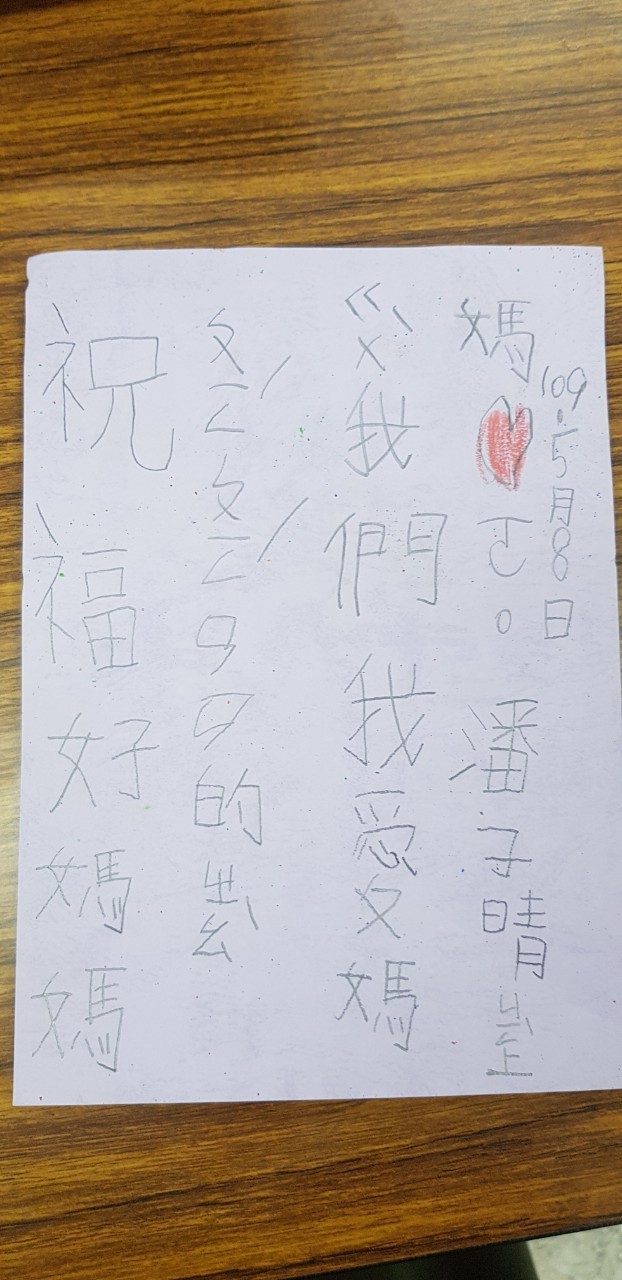 祝福好媽媽
的ㄓㄠˋ
ㄍㄨˋ我們我愛媽
媽ㄛ。潘子晴
109.5月8日